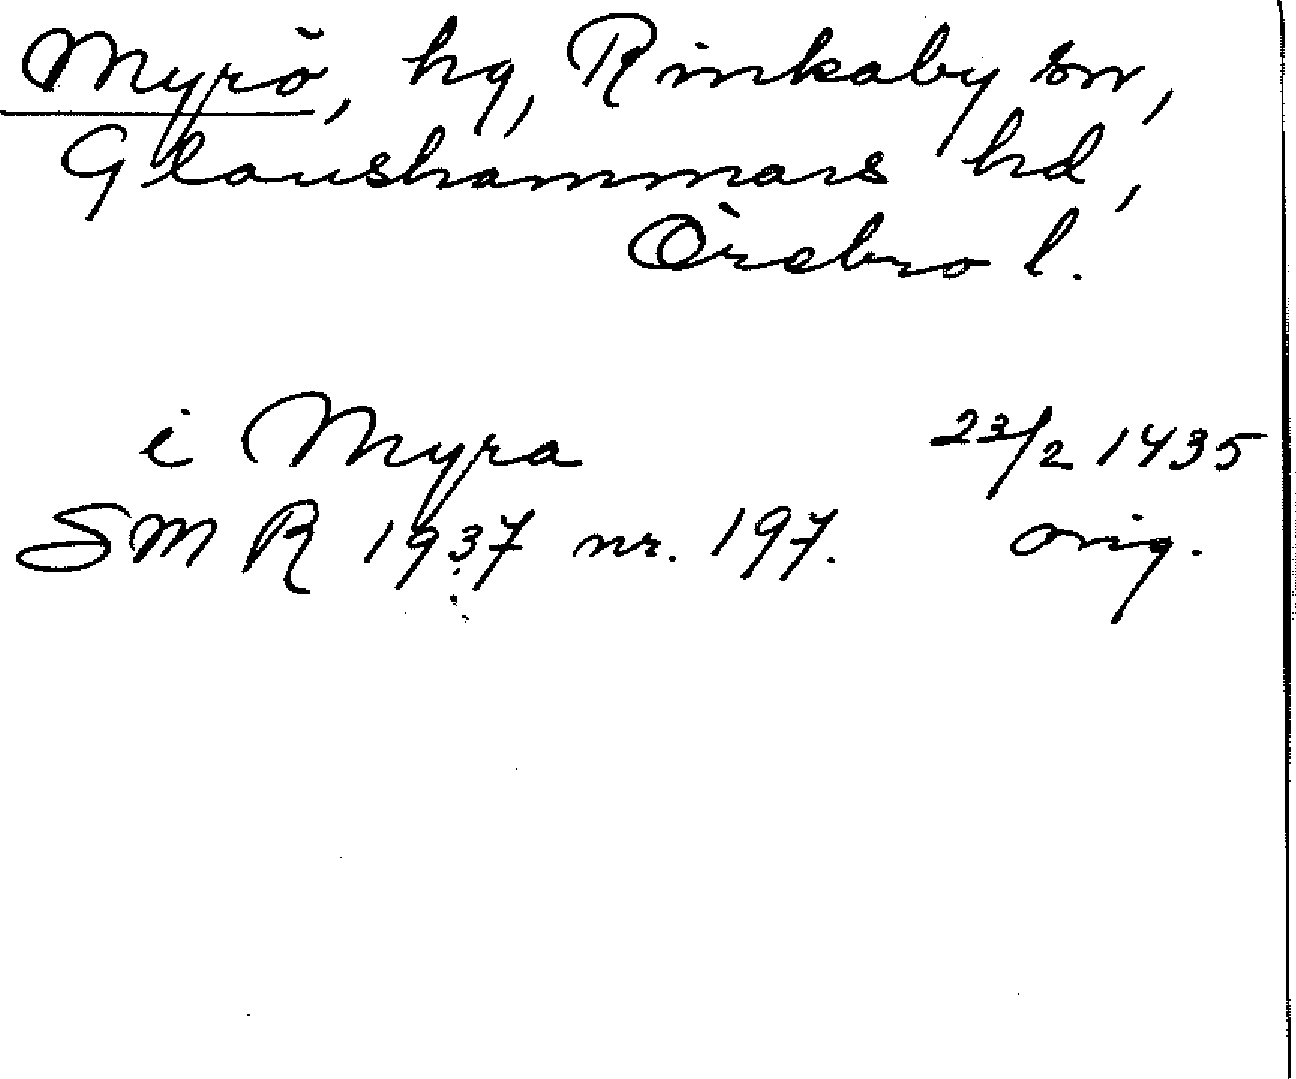 Myrö, hg, Rinkaby sn,
Glanshammars hd,
Örebro l.
i Myra 23/2 1435
SMR 1937 nr. 197. orig.